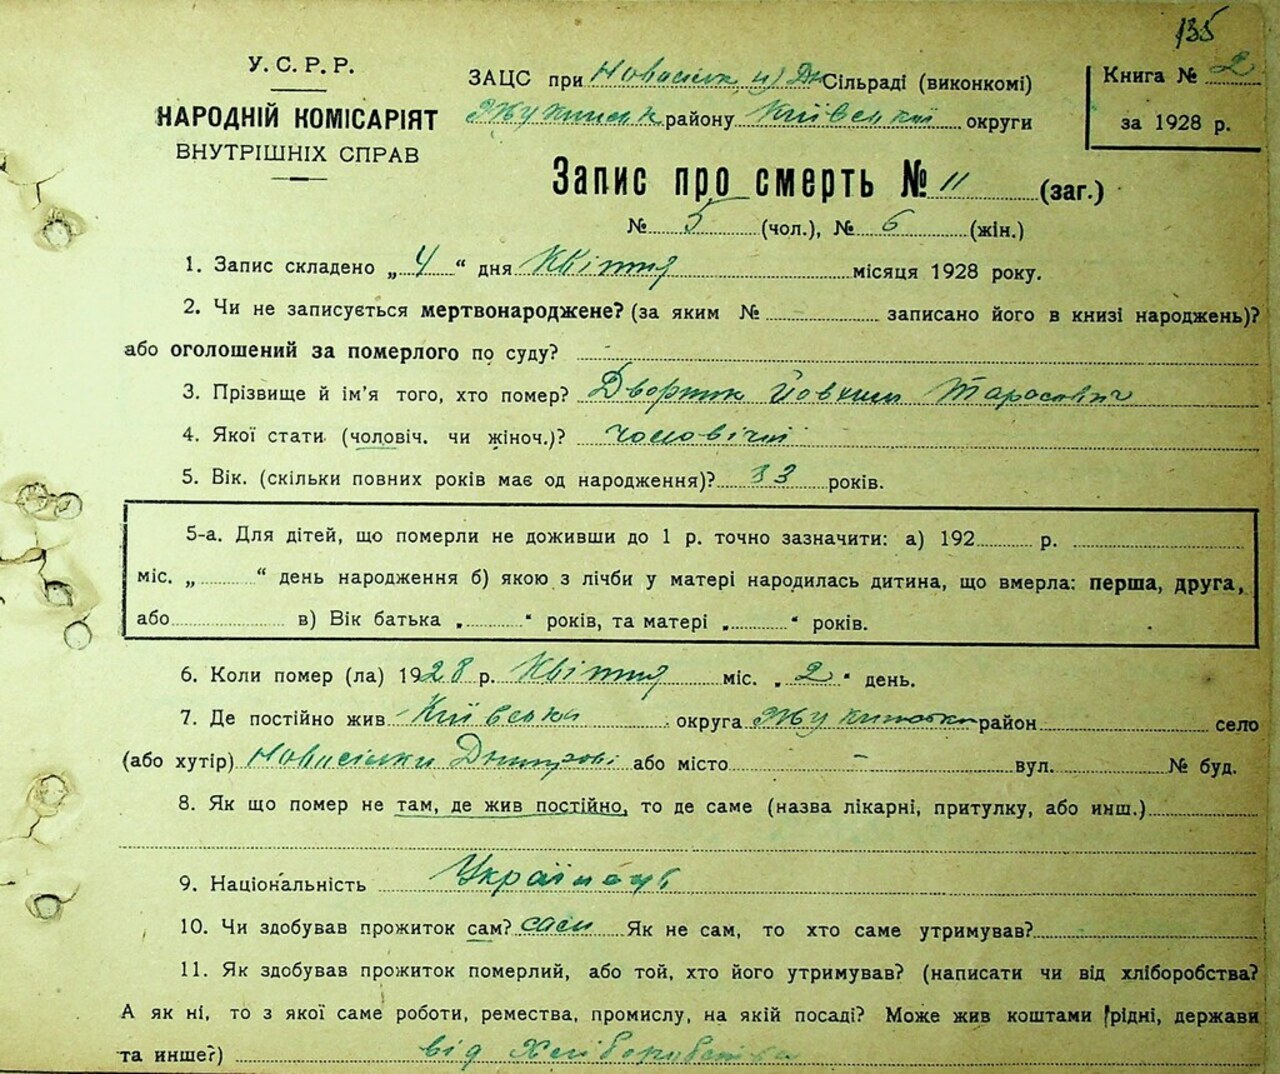 135
У.С.Р.Р.
НАРОДНІЙ КОМІСАРІЯТ
ВНУТРІШНІХ СПРАВ
ЗАЦС при Новосілк Дн Сільраді (виконкомі)
Жукинськ району Київської округи
Книга № 2
за 1928 р.
Запис про смерть № 11 (заг.)
№ 5 (чол.), № 6 (жін.)
1. Запис складено „ 4 “ дня Квітня місяця 1928 року.
2. Чи не записується мертвонароджене? (за яким № записано його в книзі народжень)?
або оголошений за померлого по суду?
3. Прізвище й ім’я того, хто помер? Дворник Йовхим Тарасович
4. Якої стати (чоловіч. чи жіноч.)? чоловічні
5. Вік. (скільки повних років має од народження)? 33 років.
5-а. Для дітей, що померли не доживши до 1 р. точно зазначити: а) 192 р.
міс. „ “ день народження б) якою з лічби у матері народилась дитина, що вмерла: перша, друга,
або в) Вік батька „ “ років, та матері „ “ років.
6. Коли помер (ла) 1928 р. Квітня міс. „ 2 “ день.
7. Де постійно жив Київська округа Жукинськи район село
(або хутір) Новосілки Дніпрові або місто – вул. № буд.
8. Як що помер не там, де жив постійно, то де саме (назва лікарні, притулку, або инш.)
9. Національність Українець
10. Чи здобував прожиток сам? сам Як не сам, то хто саме утримував?
11. Як здобував прожиток померлий, або той, хто його утримував? (написати чи від хліборобства?
А як ні, то з якої саме роботи, ремества, промислу, на якій посаді? Може жив коштами рідні, держави
та инше?) від Хліборобства